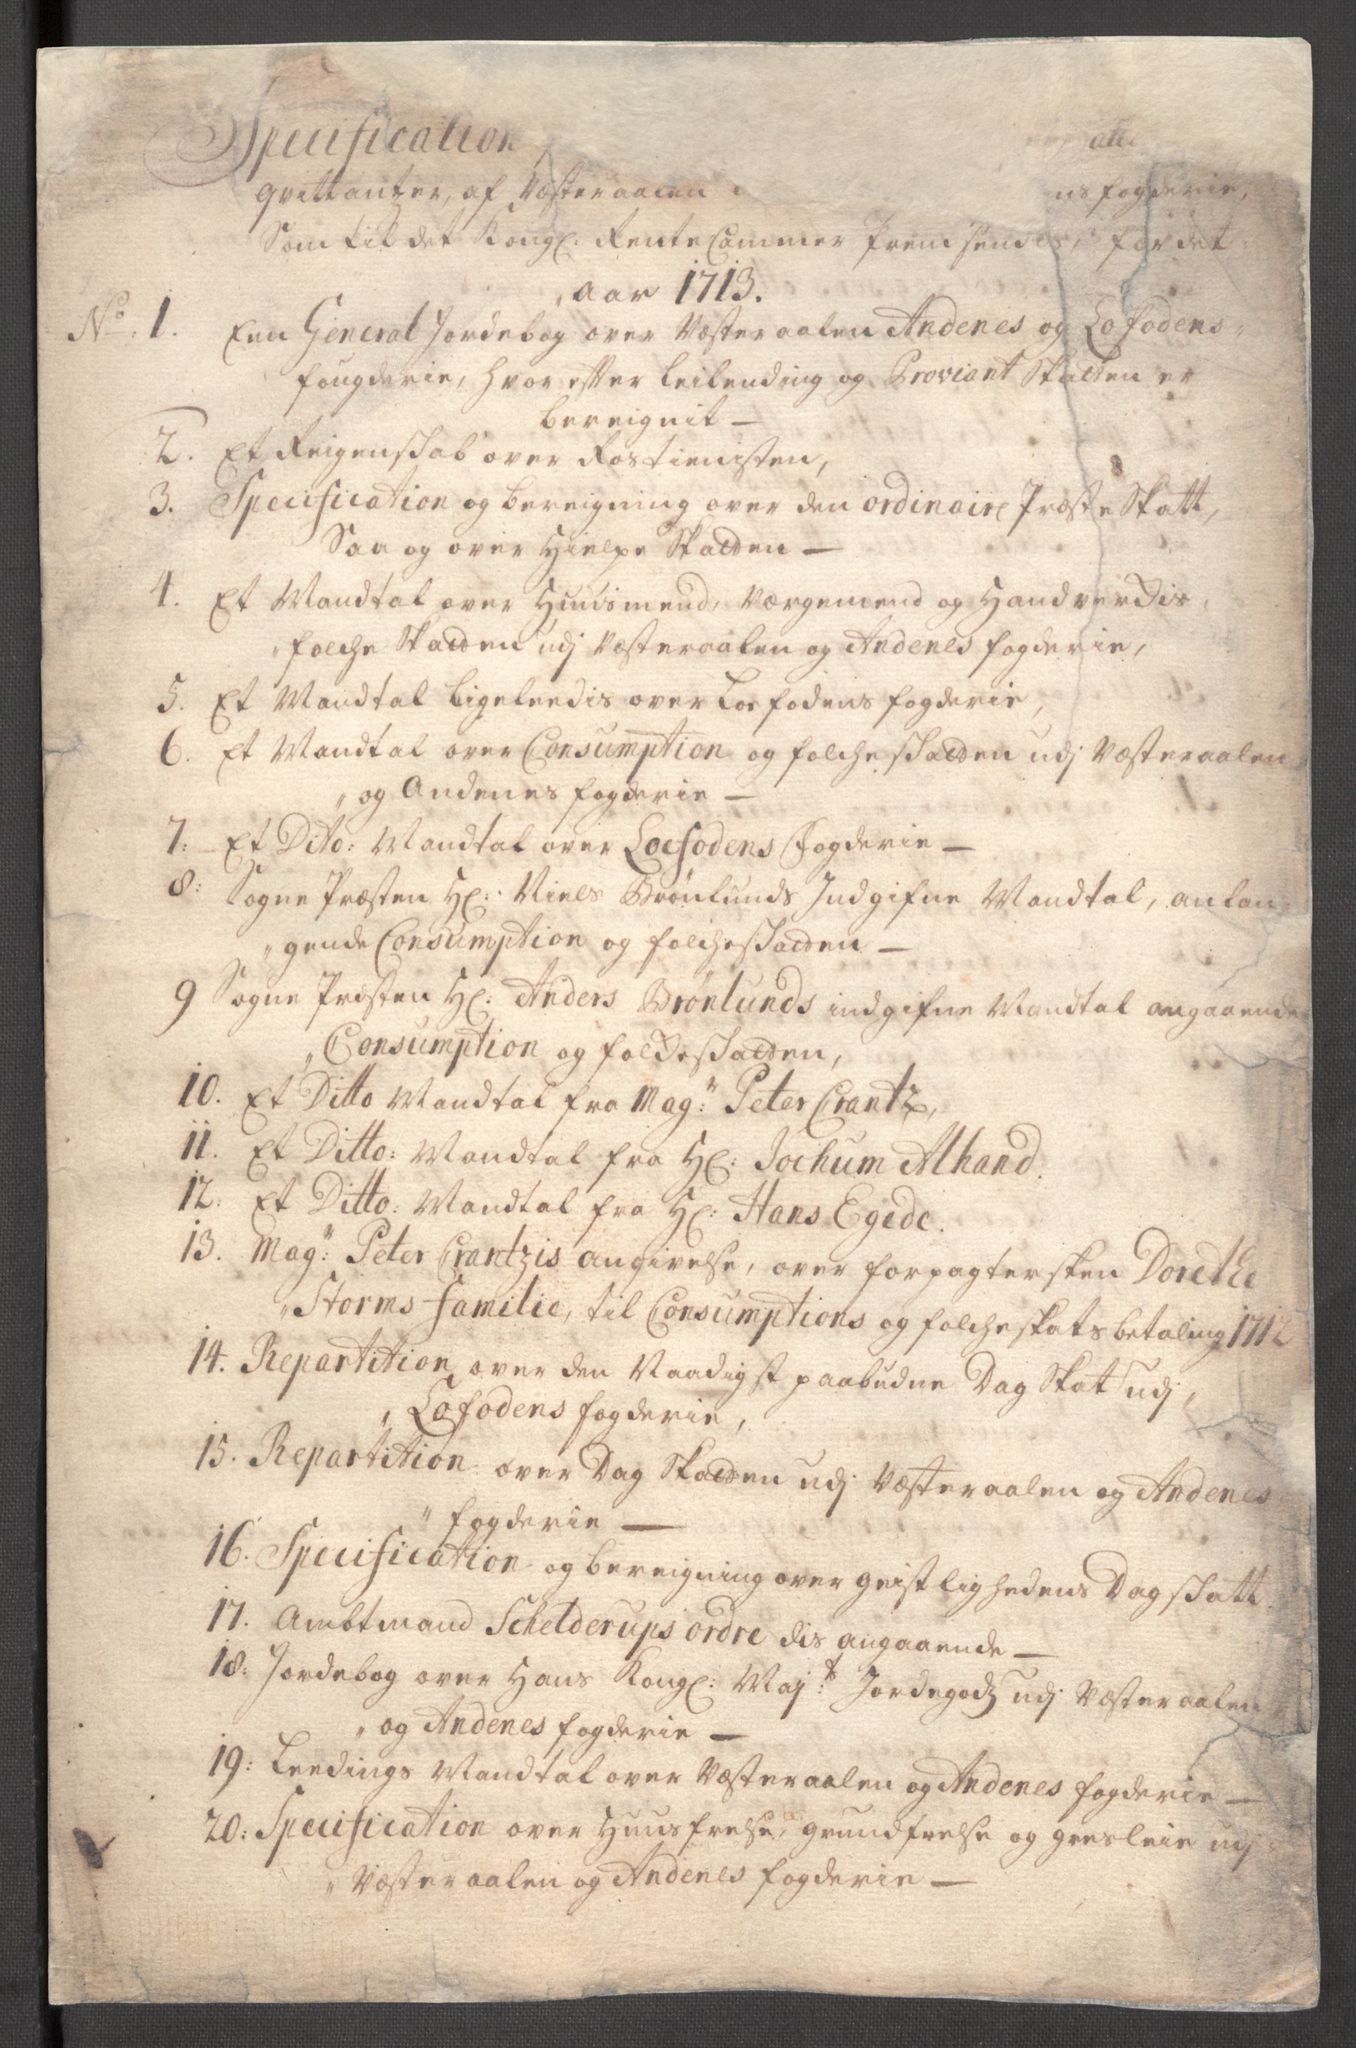 Specification
qvittantzer, af Væsteraalen ns fogderie,
Som til det Kongl: Rente Cammer fremsendes, for det
aar 1713.
No: 1. Een General Jordebog over Væsteraalen Andenes og Lofodens
fougderie, hvor efter Leilending og Proviant Skatten er
bereignit —
2. Et Reigenskab over Rostienisten,
3. Specification og bereigning over den ordinaire Præste Skatt,
Saa og over Hielpe Skatten —
4. Et Mandtal over Huusmend, Værgemend og Handverckis
folche Skatten udj Væsteraalen og Andenes fogderie,
5. Et Mandtal Ligeleedis over Loefodens fogderie,
6. Et Mandtal over Consumption og folcheskatten udj Væsteraalen
og Andenes fogderie —
7: Et Dito: Mandtal over Loefodens Fogderie —
8: Sogne Præsten Hr: Niels Brønlunds Indgifne Mandtal, anlan-
gende Consumption og folcheskatten —
9 Sogne Præsten Hr: Anders Brønlunds indgifne Mandtal angaaende
Consumption og folckeskatten,
10. Et Ditto Mandtal fra Magr: Peter Crantz,
11. Et Ditto: Mandtal fra Hr: Jochum Alhand.
12. Et Ditto: Mandtal fra Hr: Hans Egede.
13. Magr: Peter Crantzis angivelse, over forpagtersken Dorethe
Storms familie, til Consumptions og folcheskats betaling 1712
14. Repartition over den Naadigst paabudne Dag Skat udj,
Lofodens fogderie,
15. Repartition over Dag Skatten udj Væsteraalen og Andenes
fogderie —
16. Specification og bereigning over geistlighedens Dagskatt
17. Ambtmand Schelderups ordre dis angaaende —
18: Jordebog over Hans Kongl: Majt: Jordegodz udj Væsteraalen
og Andenes fogderie —
19: Leedings Mandtal over Væsteraalen og Andenes fogderie —
20: Specification over Huusfrelse, grundfrelse og gresleie udj
Væsteraalen og Andenes fogderie —